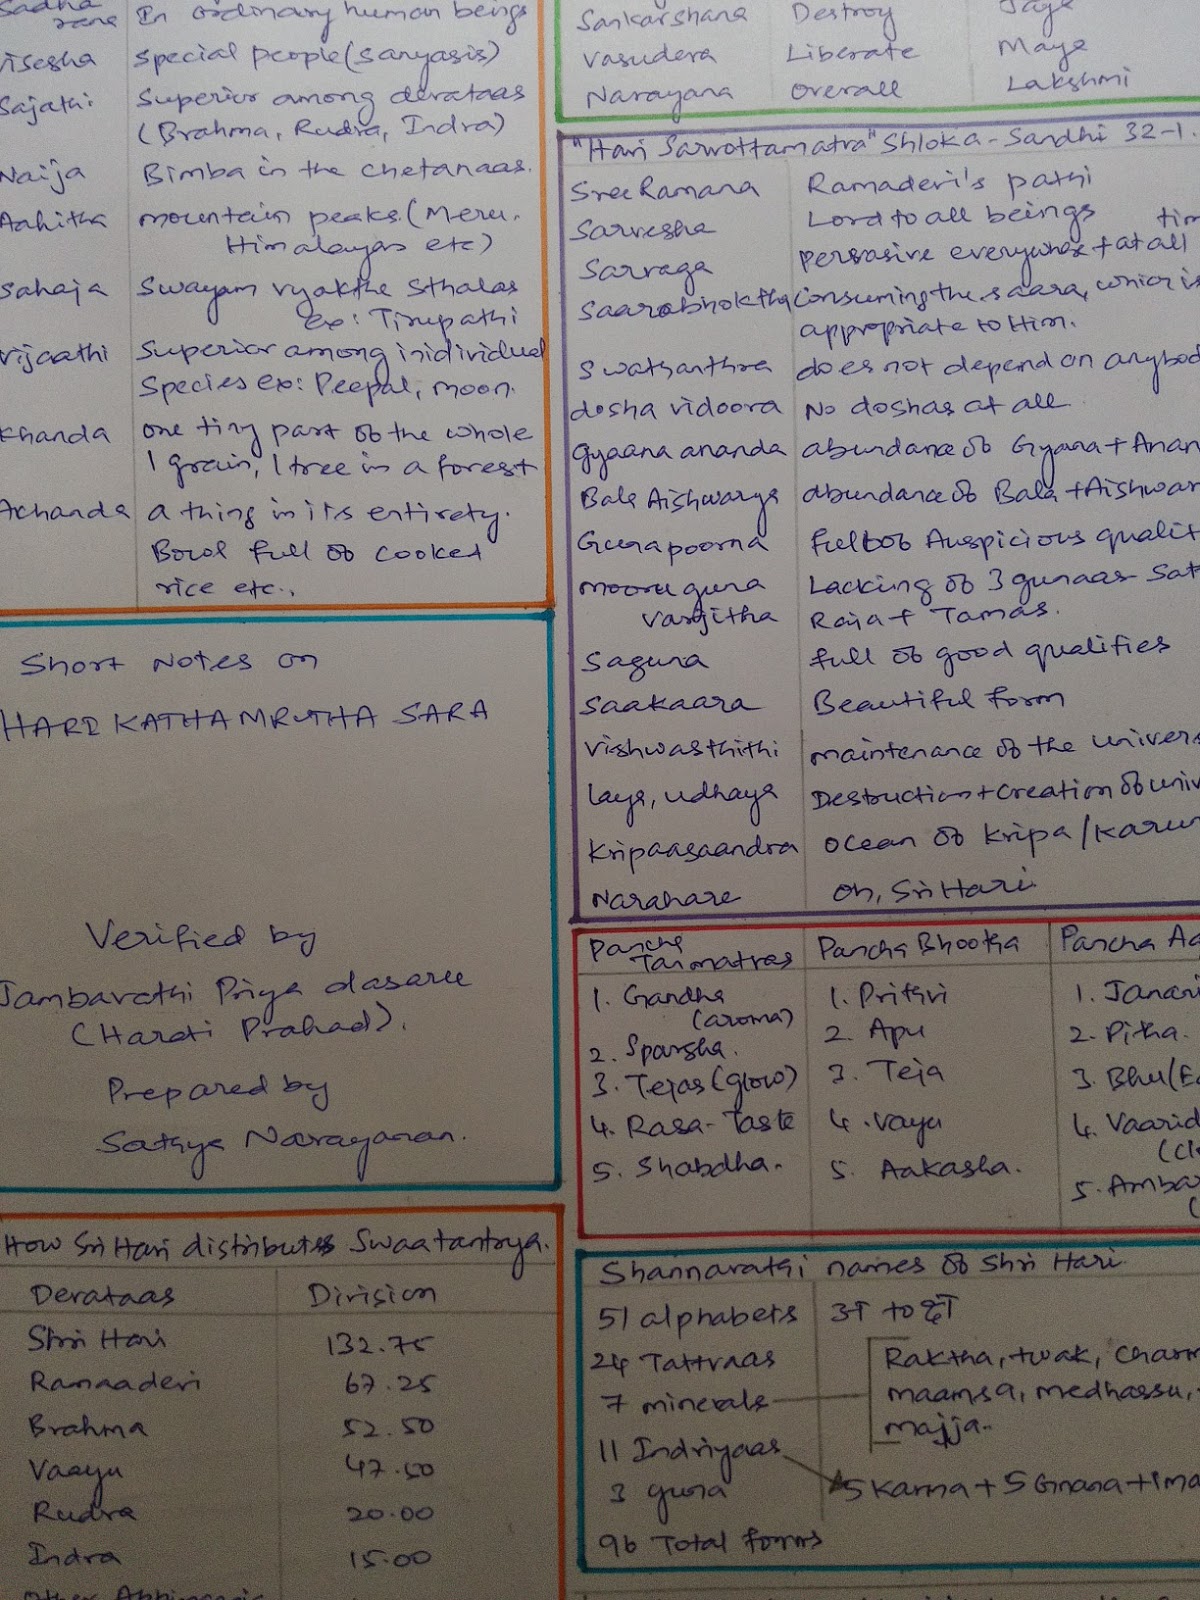 Sadha rana In ordinary human beings
Visesha special people (sanyasis)
Sajathi Superior among devataas
(Brahma, Rudra, Indra)
Naija Bimba in the chetanaas.
Aahitha mountain peaks. (Meru.
Himalayas etc)
Sahaja Swayam vyakthe Sthalas
ex: Tirupathi
Vijaathi Superior among inidividual
Species ex: Peepal, moon.
Khanda one tiny part of the whole
1 grain, 1 tree in a forest
Achanda a thing in its entirety.
Bowl full of cooked
rice etc..
Short Notes on
HARI KATHA MRUTHA SARA
Verified by
Jambavathi Priya dasaru
Prepared by
Sathya Narayanan.
How Sri Hari distributes Swaatantrya.
Devataas Division
Shri Hari 132.75
Ramaadevi 67.25
Brahma 52.50
Vaayu 47.50
Rudra 20.00
Indra 15.00
Other
Sankarshana Destroy Jaya
Vasudeva Liberate Maya
Narayana Overall Lakshmi
"Hari Sarvottamatva" Shloka - Sandhi 32-1.
Sree Ramana Ramadevi's pathi
Sarvesha Lord to all beings
Sarvaga pervasive everywhere + at all tim
Saarabhoktha Consuming the saara, which is
appropriate to Him.
Swathanthra does not depend on anybod
dosha vidoora No doshas at all
Gyaana ananda abundance of Gyana + Anan
Bala Aishwarya abundance of Bala + Aishwar
Guna poorna full of Auspicious qualit
mooru guna Lacking of 3 gunaas - Sat
varjitha Raja + Tamas.
Saguna full of good qualifies
Saakaara Beautiful form
Vishwasthithi maintenance of the univers
laya, udhaya Destruction + Creation of univ
Kripaasaandra Ocean of Kripa / Karun
Narahare Oh, Sri Hari
Pancha Tanmatras Pancha Bhootha Pancha
1. Gandha 1. Prithvi 1. Janani
(aroma)
2. Sparsha. 2. Apu 2. Pitha.
3. Tejas (glow) 3. Teja 3. Bhu (E
4. Rasa - Taste 4. Vayu 4. Vaarid
(cl
5. Shabdha. 5. Aakasha. 5. Ambar
Shannavathi names of Shri Hari
51 alphabets
24 Tattvaas Raktha, twak, charm
7 minerals maamsa, medhassu,
majja..
11 Indriyaas
3 guna 5 Karma + 5 Gnana + 1 ma
96 Total forms